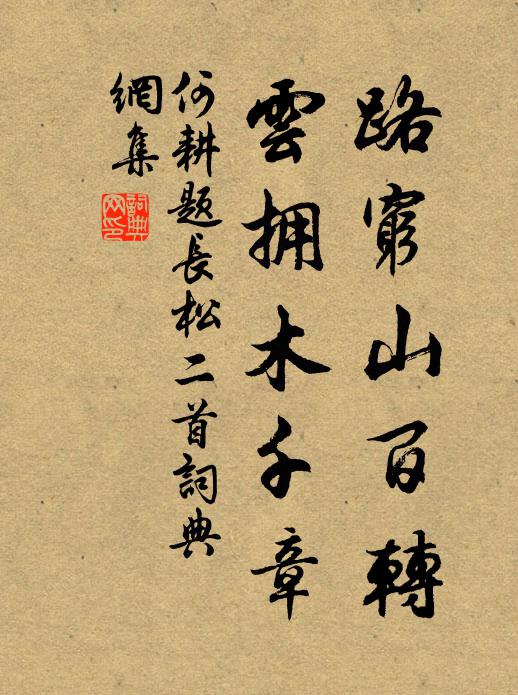 路窮山百轉
雲拥木千章
何耕题長松二首詞典
網集
詞典
网印